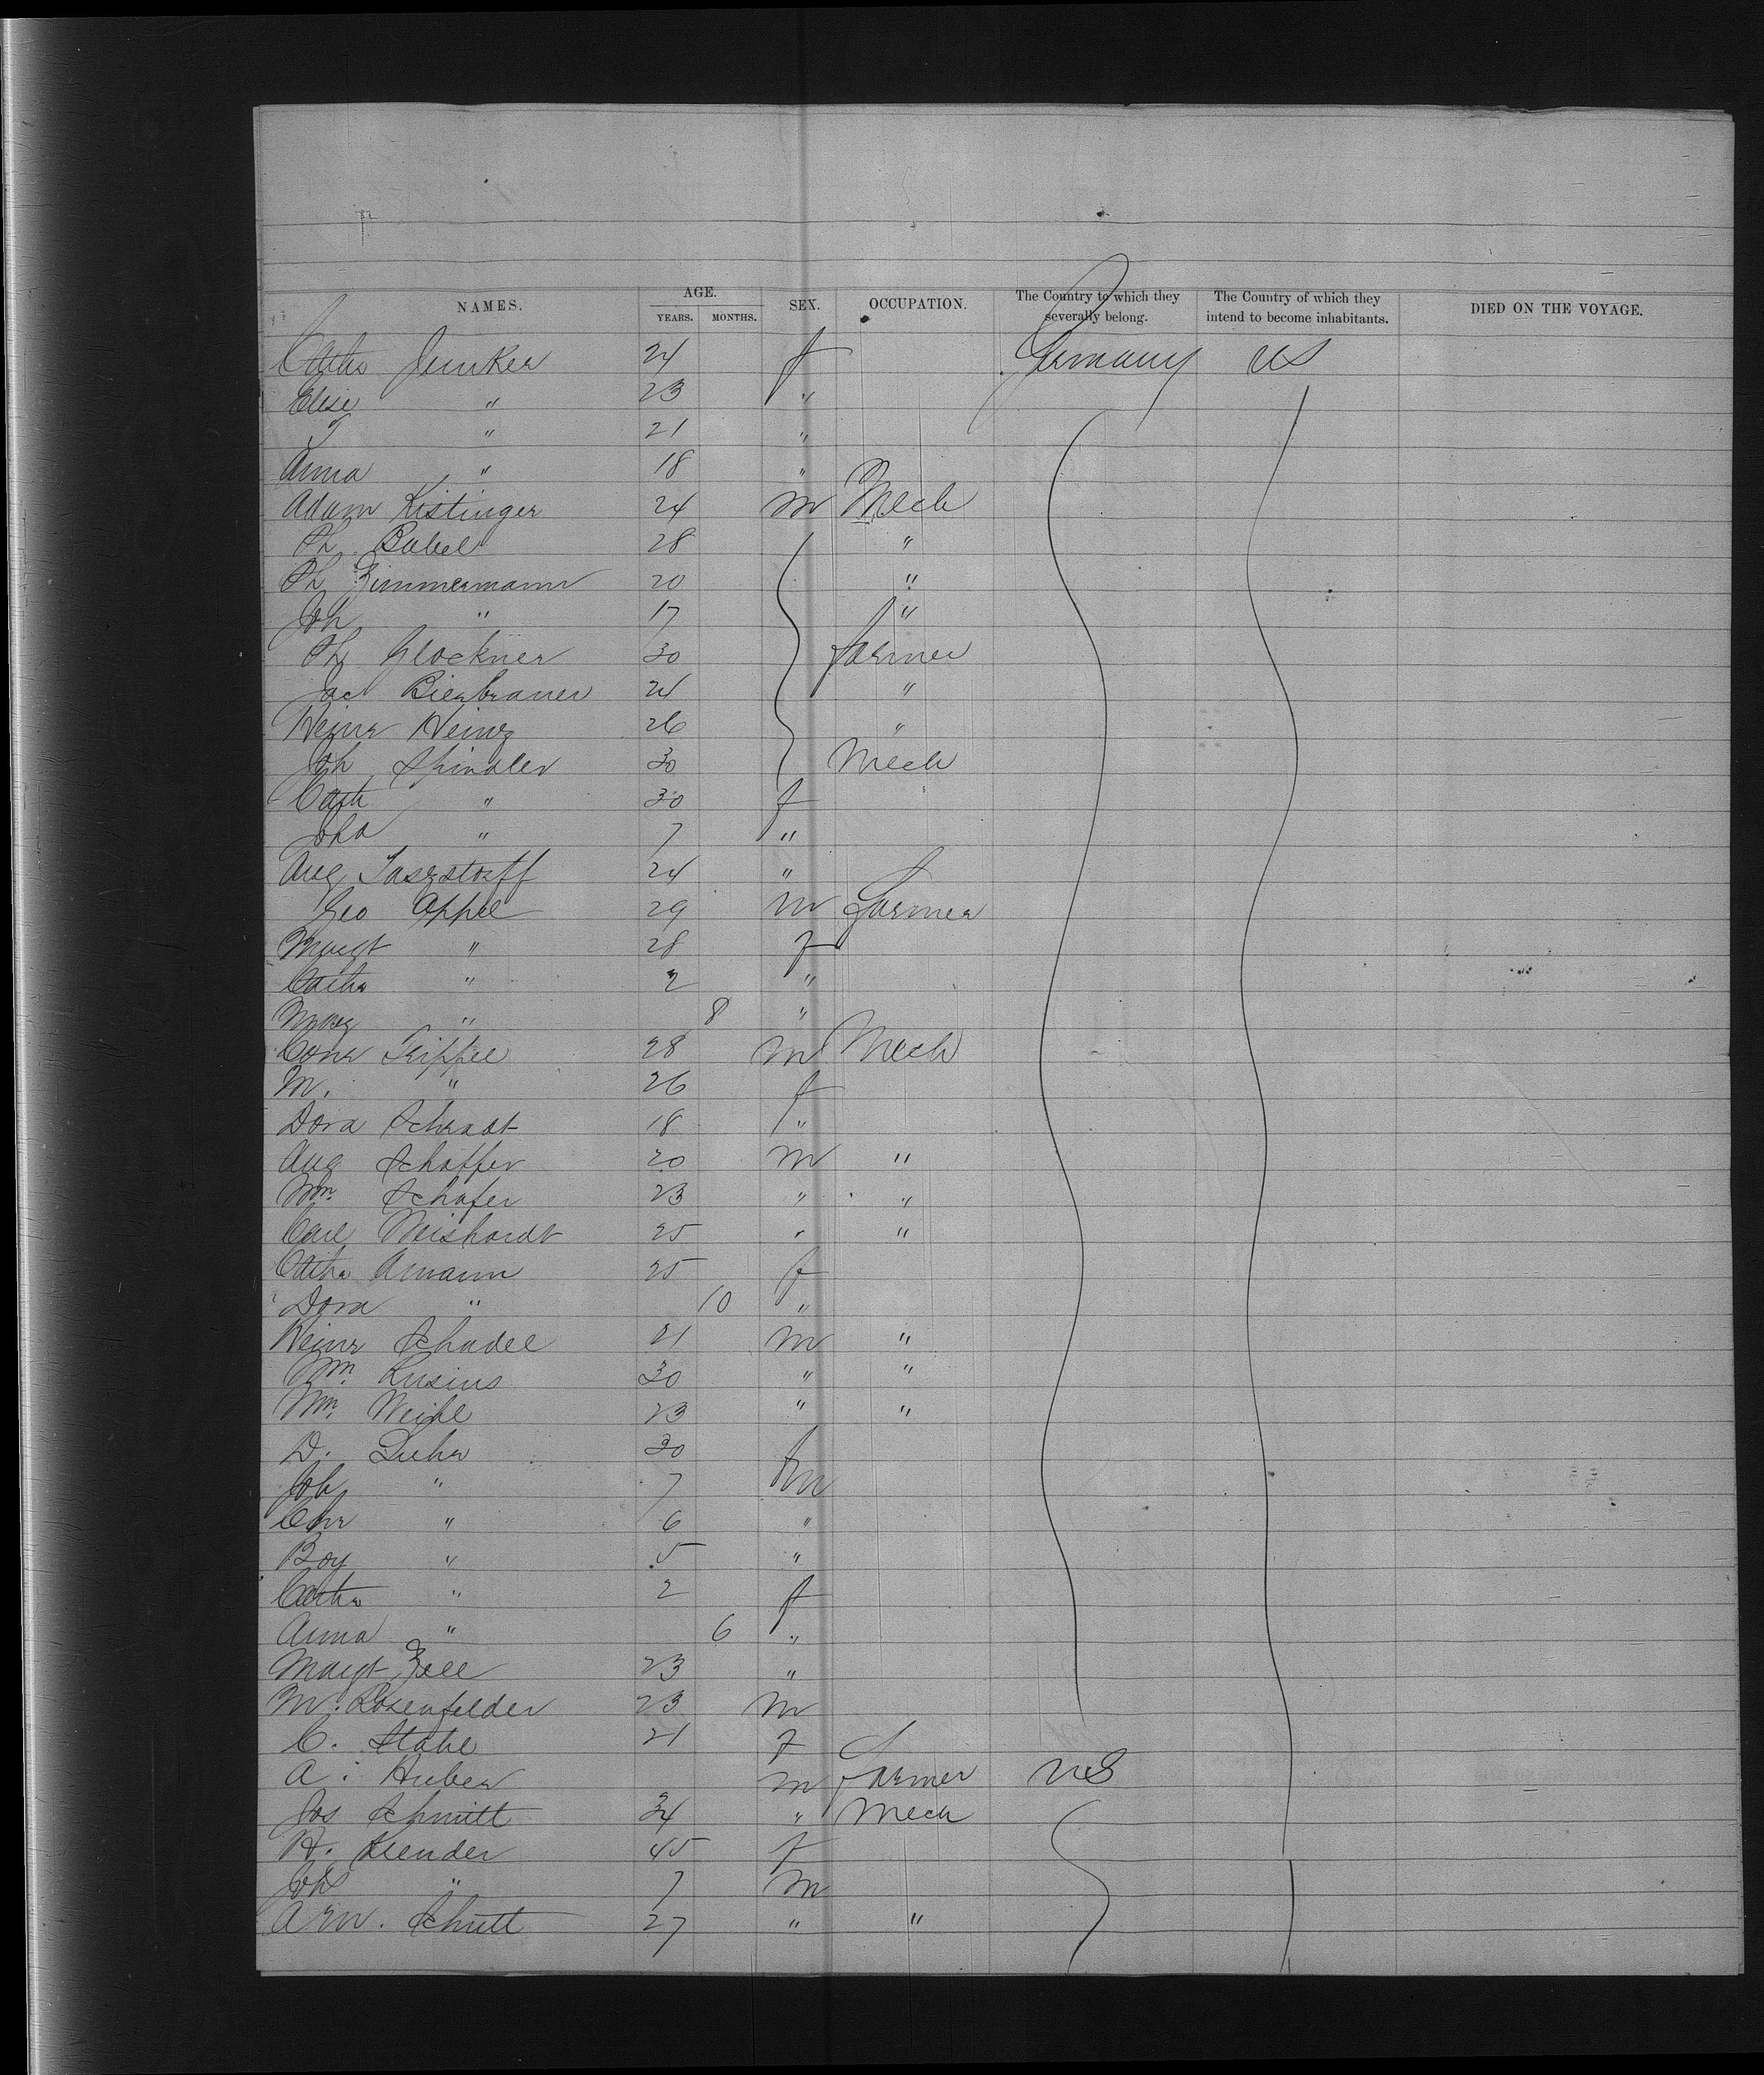 NAMES. AGE. SEX. OCCUPATION. The Country to which they severally belong. The Country of which they intend to become inhabitants. DIED ON THE VOYAGE.
YEARS. MONTHS.
Catha Junker 24 f Germany US
Elise " 23 "
" 21 "
Anna " 18 "
Adam Kistinger 24 m Mech
Ph. Babel 28 "
Ph Zimmermann 20 "
Joh " 17 "
Ph Glockner 30 farmer
Jac Bierbrauer 24 "
Heinr Heinz 26 "
Joh Spindler 30 Mech
Cath " 30 f
Joha " 7 "
Aug 24 "
Geo Appel 29 m Farmer
Margt " 28 f
Catha " 2 "
Marg " 8 "
Conr Trippel 28 m Mech
M. " 26 f
Dora 18 "
Aug Schaffer 20 m "
Wm. Schafer 23 " "
Carl Weishardt 25 " "
Catha Amann 25 f
Dora " 10 "
Heinr Schadel 21 m "
Wm. Rusius 30 " "
Wm. 23 " "
D. Luhr 30 f
Joh " 7 m
Chr " 6 "
Boy " 5 "
Catha " 2 f
Anna " 6 "
Margt Zell 23 "
M. Rosenfelder 23 m
C. Stahl 21 f
A. Huber m Farmer US
Jos Schmitt 34 " Mech
H. 45 f
Joh " 7 m
Arn. Schutt 27 " "